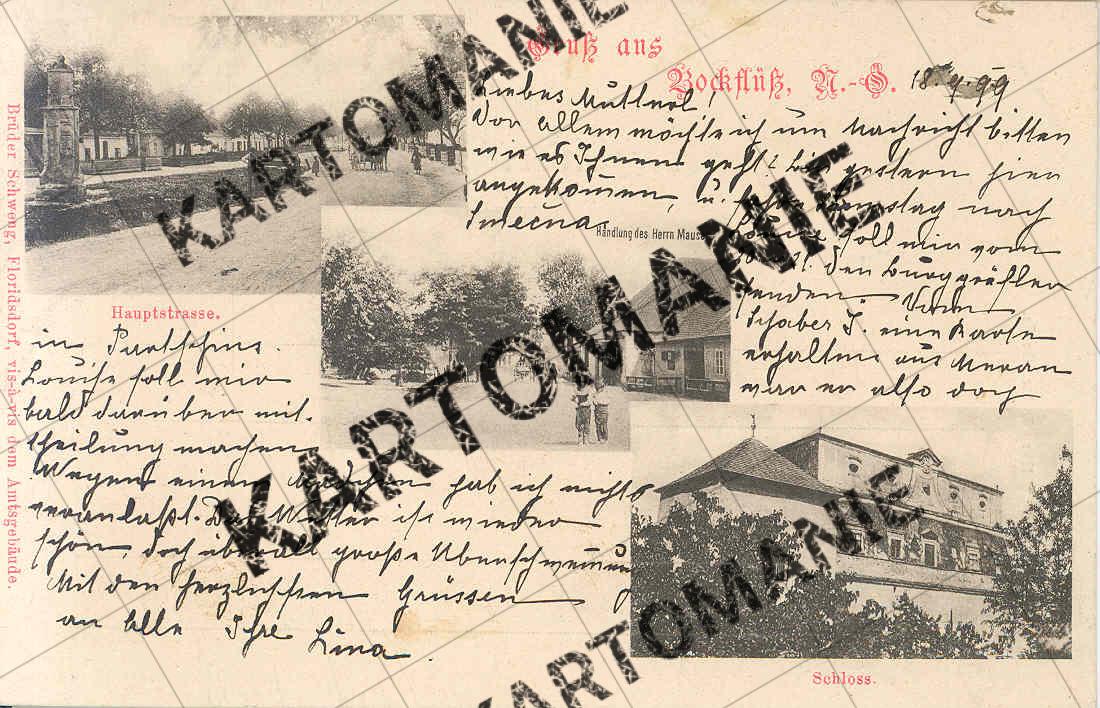 Gruß aus
Bockflüß, N.-Ö. 18 9. 99
Liebes Mutterl!
Vor allem möchte ich um Nachricht bitten
wie es Ihnen geht? Bin gestern hier
angekommen, u. Samstag nach
Smecna.
soll mir vom
den Burggräfler
senden. Vom
Schaber J. eine Karte
erhalten aus Meran
war er also doch
Händlung des Herrn Mauser
Hauptstrasse.
in Partschins.
Louise soll mir
bald darüber mit-
theilung machen
Wegen einem Mädchen hab ich nichts
veranlaßt. Das Wetter ist wieder
schön doch überall große Überschwemmung
Mit den herzlichsten Grüssen
an Alle Ihre Lina
Schloss.
Brüder Schweng, Floridsdorf, vis-à-vis dem Amtsgebäude.
KARTOMANIE
KARTOMANIE
KARTOMANIE
KARTOMANIE
KARTOMANIE